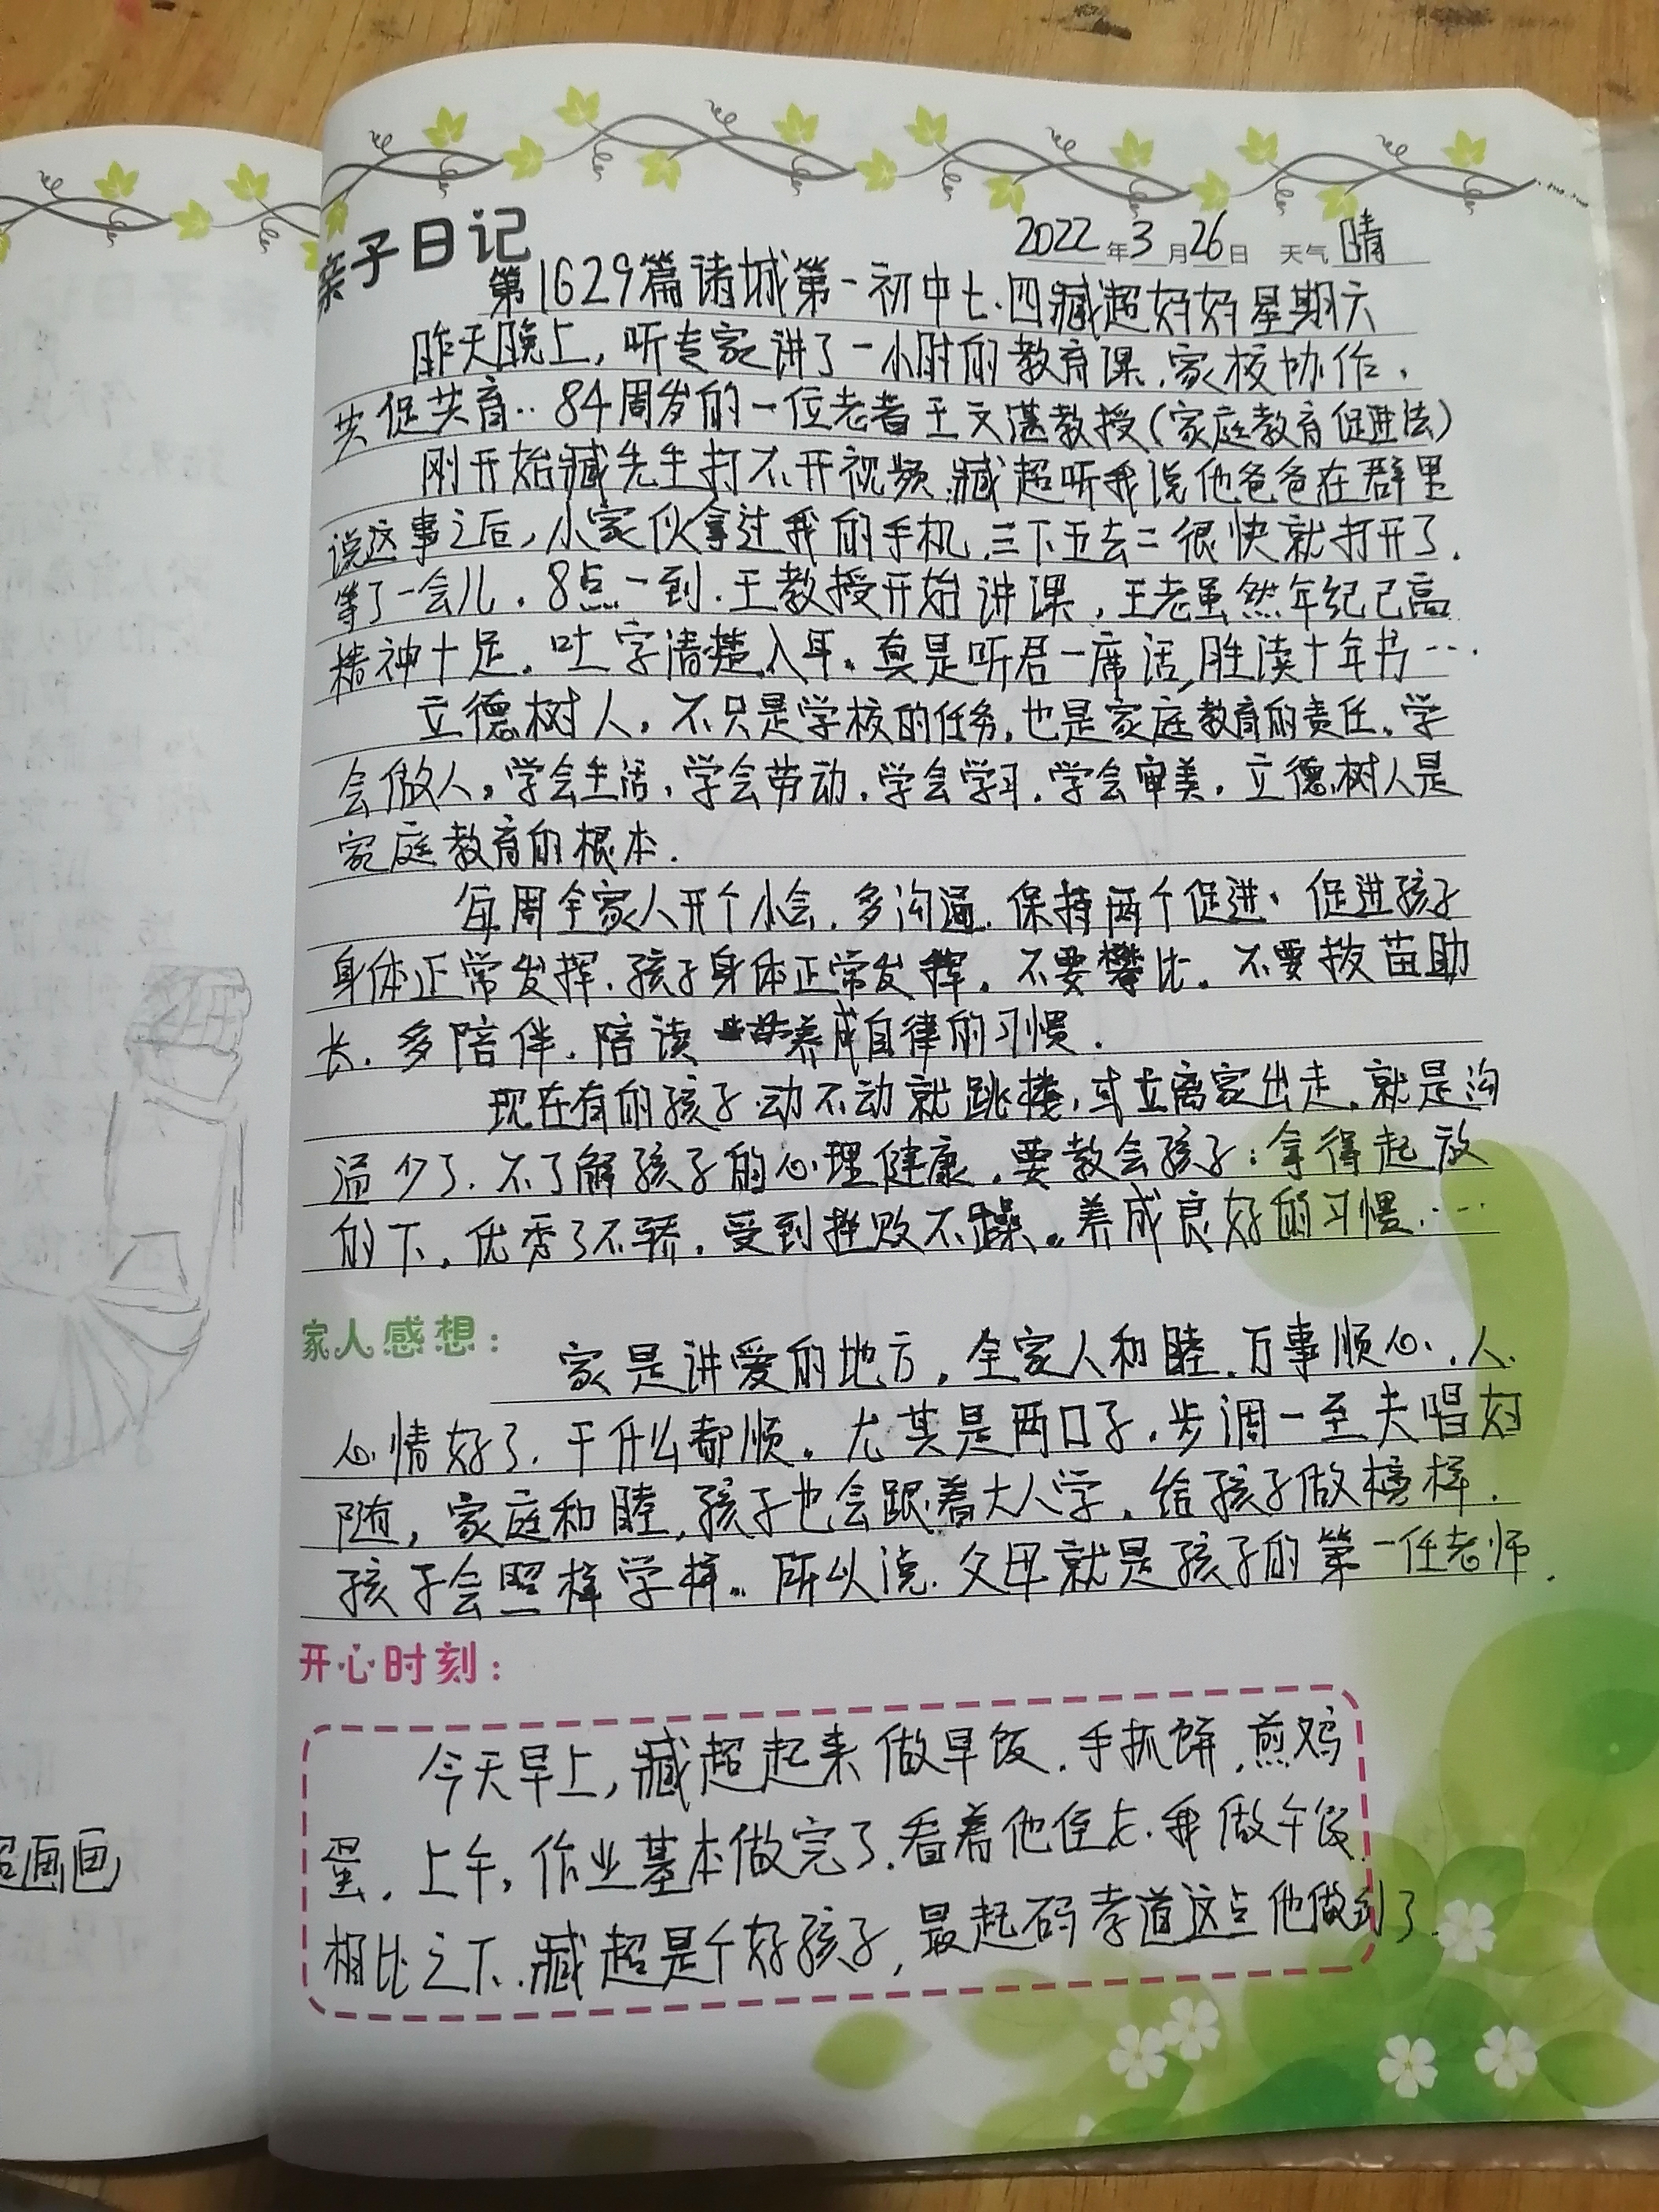 亲子日记
2022年3月26日 天气 晴
第1629篇诸城第一初中七.四臧超妈妈星期六
昨天晚上，听专家讲了一小时的教育课.家校协作，
共促共育..84周岁的一位老者王文湛教授(家庭教育促进法)
刚开始臧先生打不开视频.臧超听我说他爸爸在群里
说这事之后，小家伙拿过我的手机.三下五去二很快就打开了.
等了一会儿.8点一到.王教授开始讲课，王老虽然年纪已高
精神十足.吐字清楚入耳。真是听君一席话,胜读十年书…
立德树人，不只是学校的任务.也是家庭教育的责任。学
会做人，学会生活，学会劳动.学会学习.学会审美.立德树人是
家庭教育的根本.
每周全家人开个小会.多沟通.保持两个促进、促进孩子
身体正常发挥.孩子身体正常发挥。不要攀比。不要拔苗助
长.多陪伴.陪读 养成自律的习惯.
现在有的孩子动不动就跳楼，或立离家出走.就是沟
通少了.不了解孩子的心理健康.要教会孩子：拿得起放
的下.优秀了不骄.受到挫败不躁。养成良好的习惯.…
家人感想：
家是讲爱的地方.全家人和睦.万事顺心.人
心情好了.干什么都顺。尤其是两口子.步调一至夫唱妇
随，家庭和睦.孩子也会跟着大人学.给孩子做榜样.
孩子会照样学样。所以说.父母就是孩子的第一任老师.
开心时刻：
今天早上，臧超起来做早饭.手抓饼.煎鸡
蛋.上午，作业基本做完了.看着他侄女.我做午饭.
相比之下.臧超是个好孩子，最起码孝道这点他做到了.
超画画